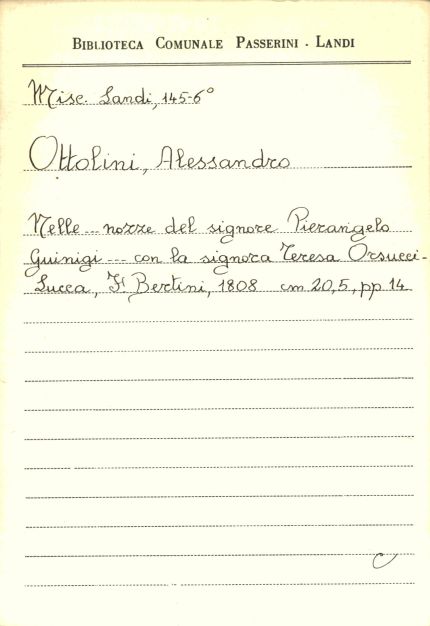 BIBLIOTECA COMUNALE PASSERINI - LANDI
Misc. Landi, 145-6°
Ottolini, Alessandro
Nelle ... nozze del signore Pierangelo
Guinigi --- con la signora Teresa Orsucci-
Lucca, F. Bertini, 1808 cm 20,5, pp 14
C